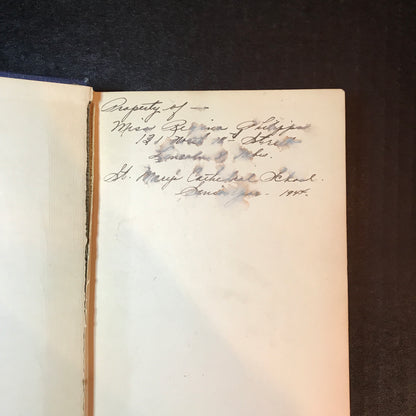 Property of —
Miss Regina Philipps
121 North 18th Street
Lincoln 8, Nebr.
St. Mary's Cathedral School.
Senior year- 1944.